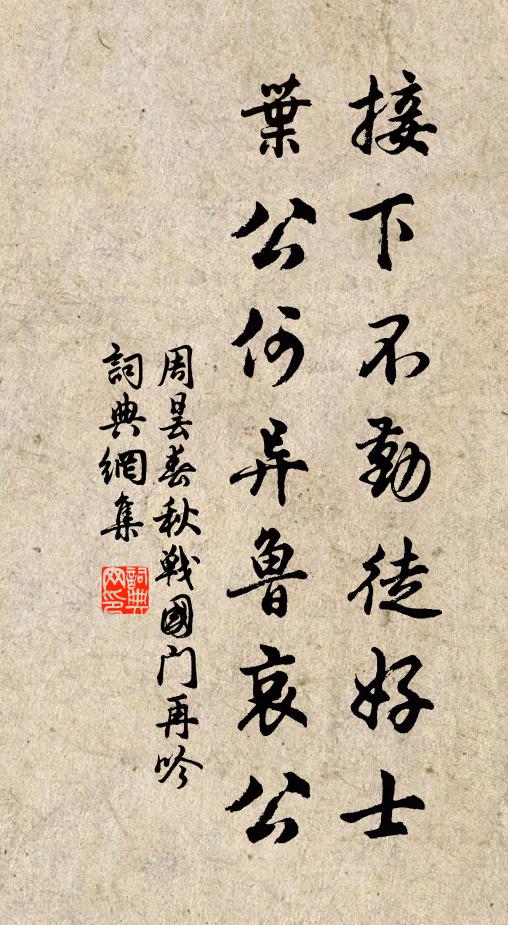 接下不勤徒好士
葉公何异魯哀公
周昙春秋戰國门再吟
詞典網集
詞典网印